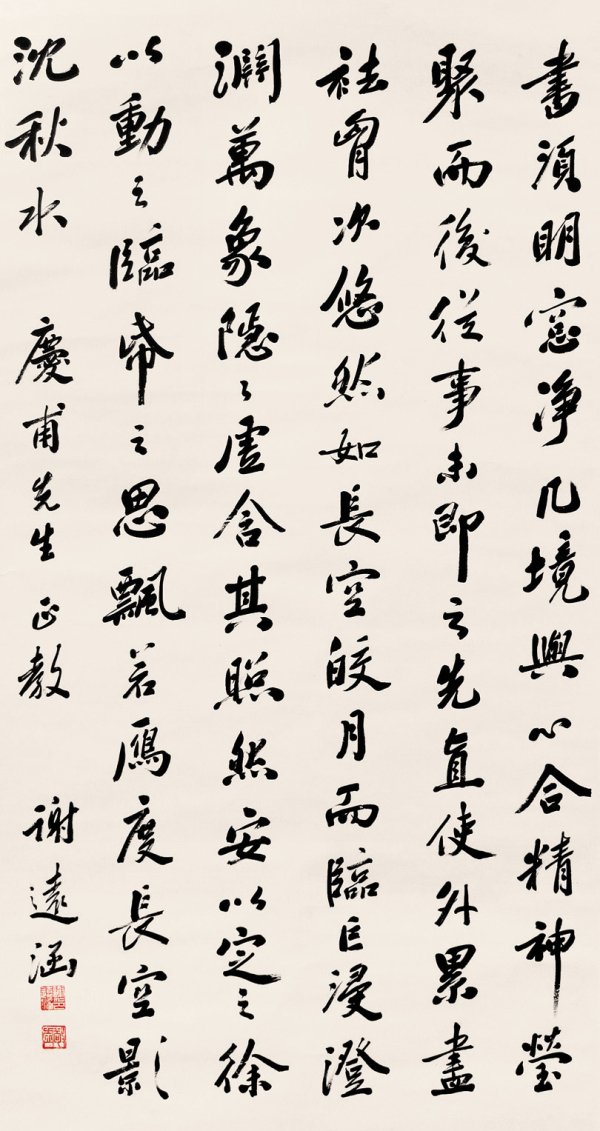 書須明窓淨几境與心合精神瑩
聚而後從事未即云先直使外累盡
祛胷次悠然如長空皎月而臨巨浸澄
瀾萬象隱々虛含其照然安以定之徐
以動之臨帋之思飄若鴈度長空影
沈秋水 慶甫先生正教 謝遠涵